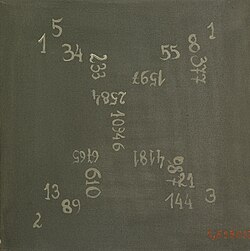 5
1
1
34
233
55
8
377
1597
2584
10946
6765
4181
610
987
21
144
3
13
89
2